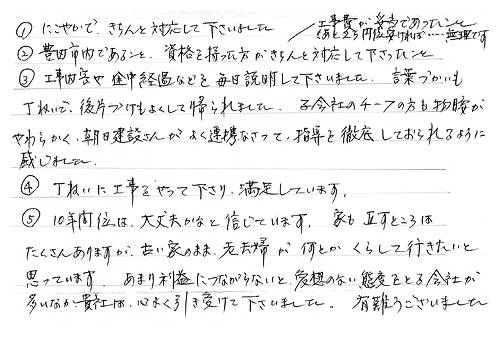 ① にこやかで、きちんと対応して下さいました
工事費が妥当であったこと
(あと5万円位安ければ……無理です
② 豊田市内であること、資格を持った方がきちんと対応して下さったこと
③ 工事内容や途中経過などを毎日説明して下さいました。言葉づかいも
丁ねいで、後片づけもよくして帰られました。子会社のチーフの方も物腰が
やわらかく、朝日建設さんがよく連携なさって、指導を徹底しておられるように
感じました。
④ 丁ねいに工事をやって下さり、満足しています。
⑤ 10年間位は、大丈夫かなと信じています。家も直すところは
たくさんありますが、古い家のまま、老夫婦が何とかくらして行きたいと
思っています。あまり利益につながらないと、愛想のない態度をとる会社が
多いなか貴社は、心よく引き受けて下さいました。有難うございました